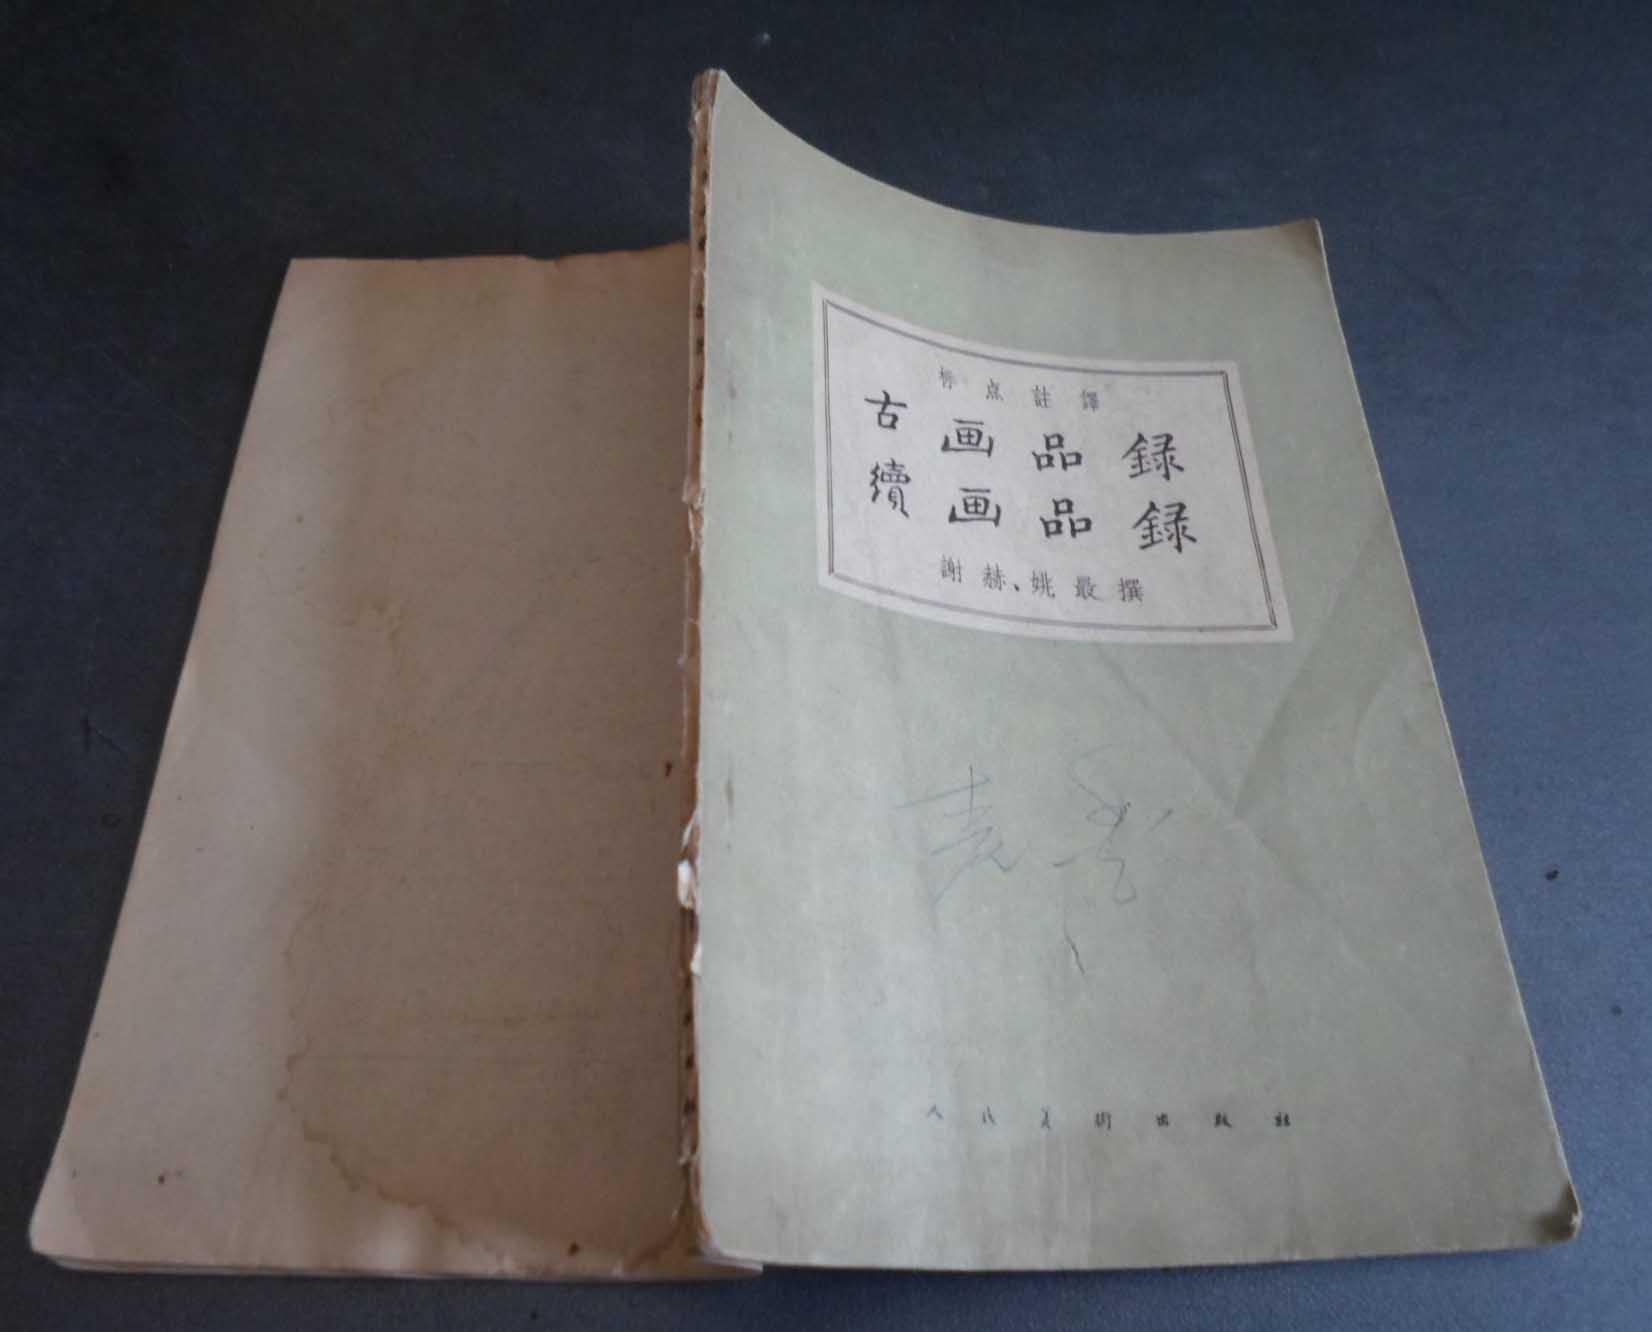 标点註譯
古画品録
續画品録
謝赫、姚最撰
人民美術出版社